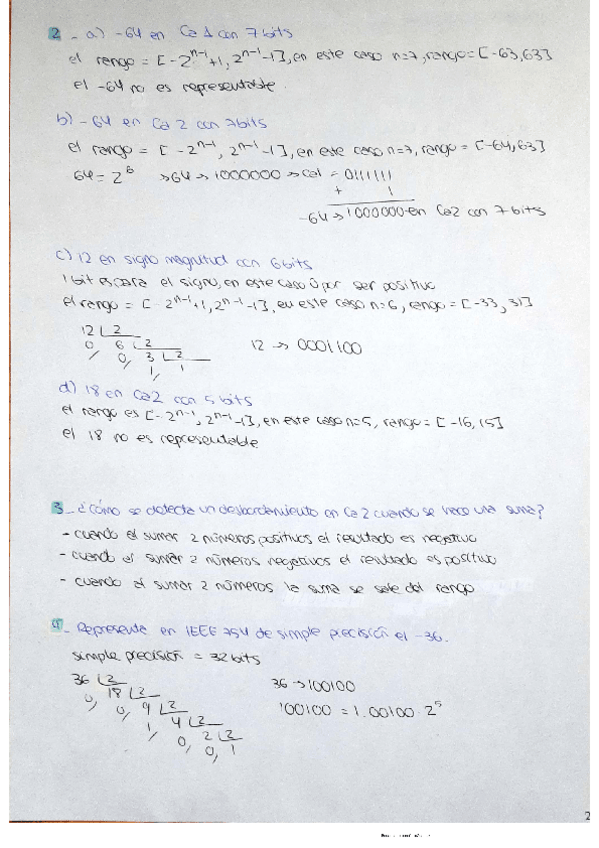 2_ a) -64 en Ca1 con 7 bits
el rango = [-2^n-1+1, 2^n-1-1], en este caso n=7, rango = [-63,63]
el -64 no es representable.
b) -64 en Ca2 con 7 bits
el rango = [-2^n-1, 2^n-1-1], en este caso n=7, rango = [-64,63]
64 = 2^6 → 64 → 1000000 → Ca1 = 0111111
+ 1
-64 → 1000000 en Ca2 con 7 bits
c) 12 en signo magnitud con 6 bits
1 bit es para el signo, en este caso 0 por ser positivo
el rango = [-2^n-1+1, 2^n-1-1], en este caso n=6, rango = [-33, 31]
12 2
0 6 2 12 → 0001100
0 3 2
1 1
d) 18 en Ca2 con 5 bits
el rango es [-2^n-1, 2^n-1-1], en este caso n=5, rango = [-16,15]
el 18 no es representable
3_ ¿Cómo se detecta un desbordamiento en Ca2 cuando se hace una suma?
- cuando al sumar 2 números positivos el resultado es negativo
- cuando al sumar 2 números negativos el resultado es positivo
- cuando al sumar 2 números la suma se sale del rango
4_ Representa en IEEE 754 de simple precisión el -36.
simple precisión = 32 bits
36 2 36 → 100100
0 18 2 100100 = 1.00100 · 2^5
0 9 2
1 4 2
0 2 2
0 1
2